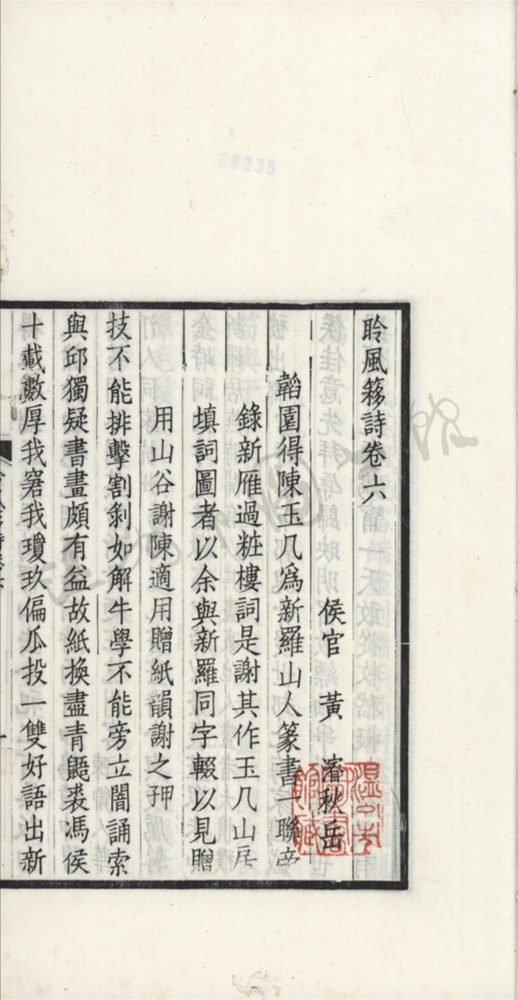 聆風簃詩卷六
侯官 黃 濬秋岳
韜園得陳玉几爲新羅山人篆書一聯旁
錄新雁過粧樓詞是謝其作玉几山房
填詞圖者以余與新羅同字輟以見贈
用山谷謝陳適用贈紙韻謝之
技不能排擊割剝如解牛學不能旁立闇誦索
與邱獨疑書畫頗有益故紙換盡青鼦裘馮侯
十載數厚我窘我瓊玖偏瓜投一雙好語出新